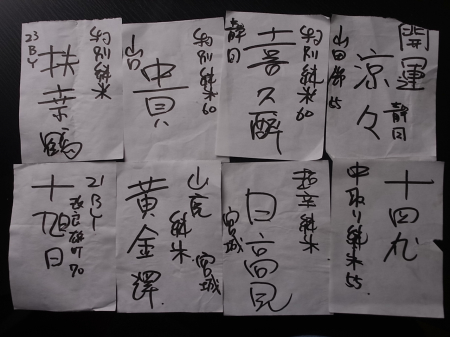 開運
涼々
静岡
山田錦55
特別純米60
喜久酔
静岡
特別純米60
貴
山口
特別純米
扶桑鶴
23BY
十四代
中取り純米55
超辛純米
日高見
宮城
宮城
山廃純米
黄金澤
21BY
改良雄町70
十旭日